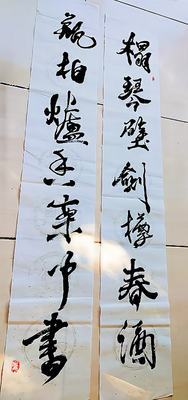 榻琴壁劍樽春酒
瓶柏爐香案中書